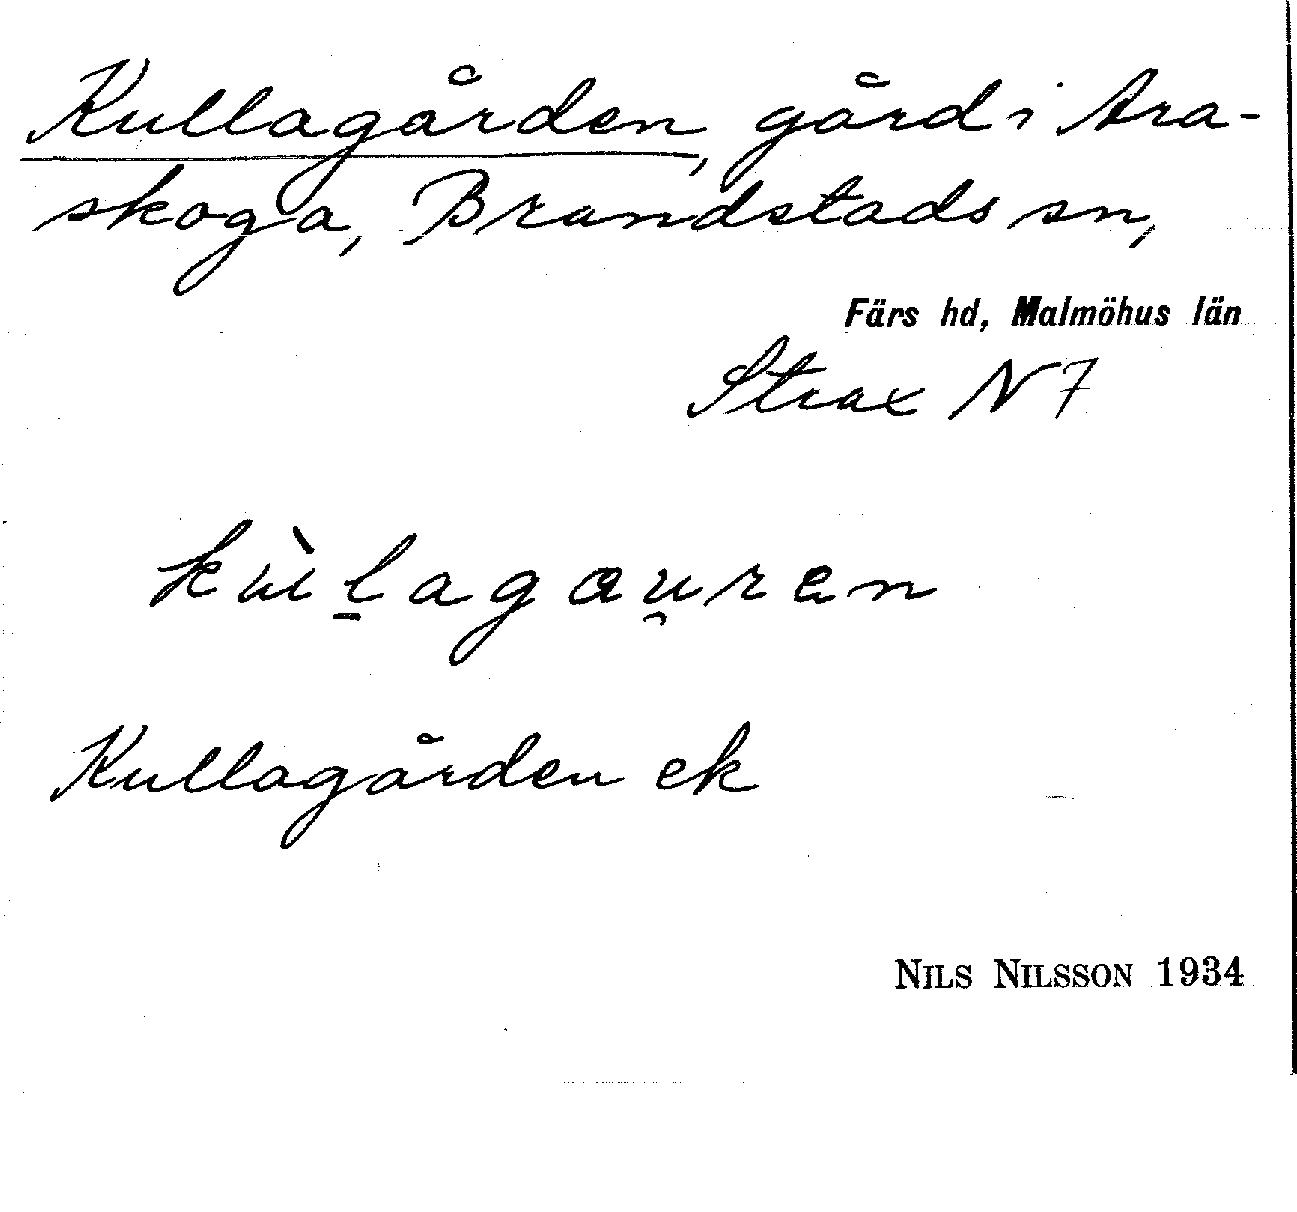 Kullagården, gård i Ara-
skoga, Brandstads sn,
Färs hd, Malmöhus län
Strax N 7
Kullagården ek
NILS NILSSON 1934